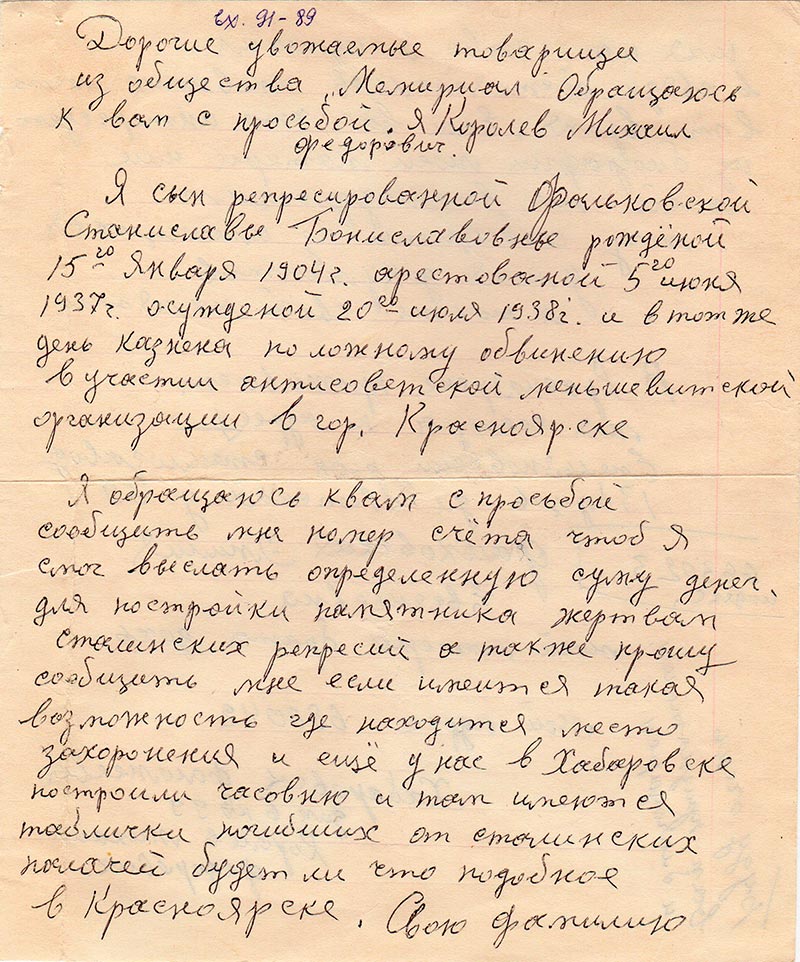 вх. 91-89
Дорогие уважаемые товарищи
из общества „Мемириал" Обращаюсь
к вам с просьбой. Я Королев Михаил
Федорович.
Я сын репресированной Фальковской
Станиславы Бониславовны рождёной
15го Января 1904г. арестованой 5го июня
1937г. осужденой 20го июля 1938г. и в тот же
день казнена по ложному обвинению
в участии антисоветской меньшевитской
организации в гор. Красноярске
Я обращаюсь к вам с просьбой
сообщить мне номер счёта чтоб я
смог выслать определенную суму денег.
для постройки памятника жертвам
сталинских репресий а также прошу
сообщить мне если имеится такая
возможность где находится место
захоронения и ещё у нас в Хабаровске
построили часовню и там имеются
таблички погибших от сталинских
палачей будет ли что подобное
в Красноярске. Свою фамилию